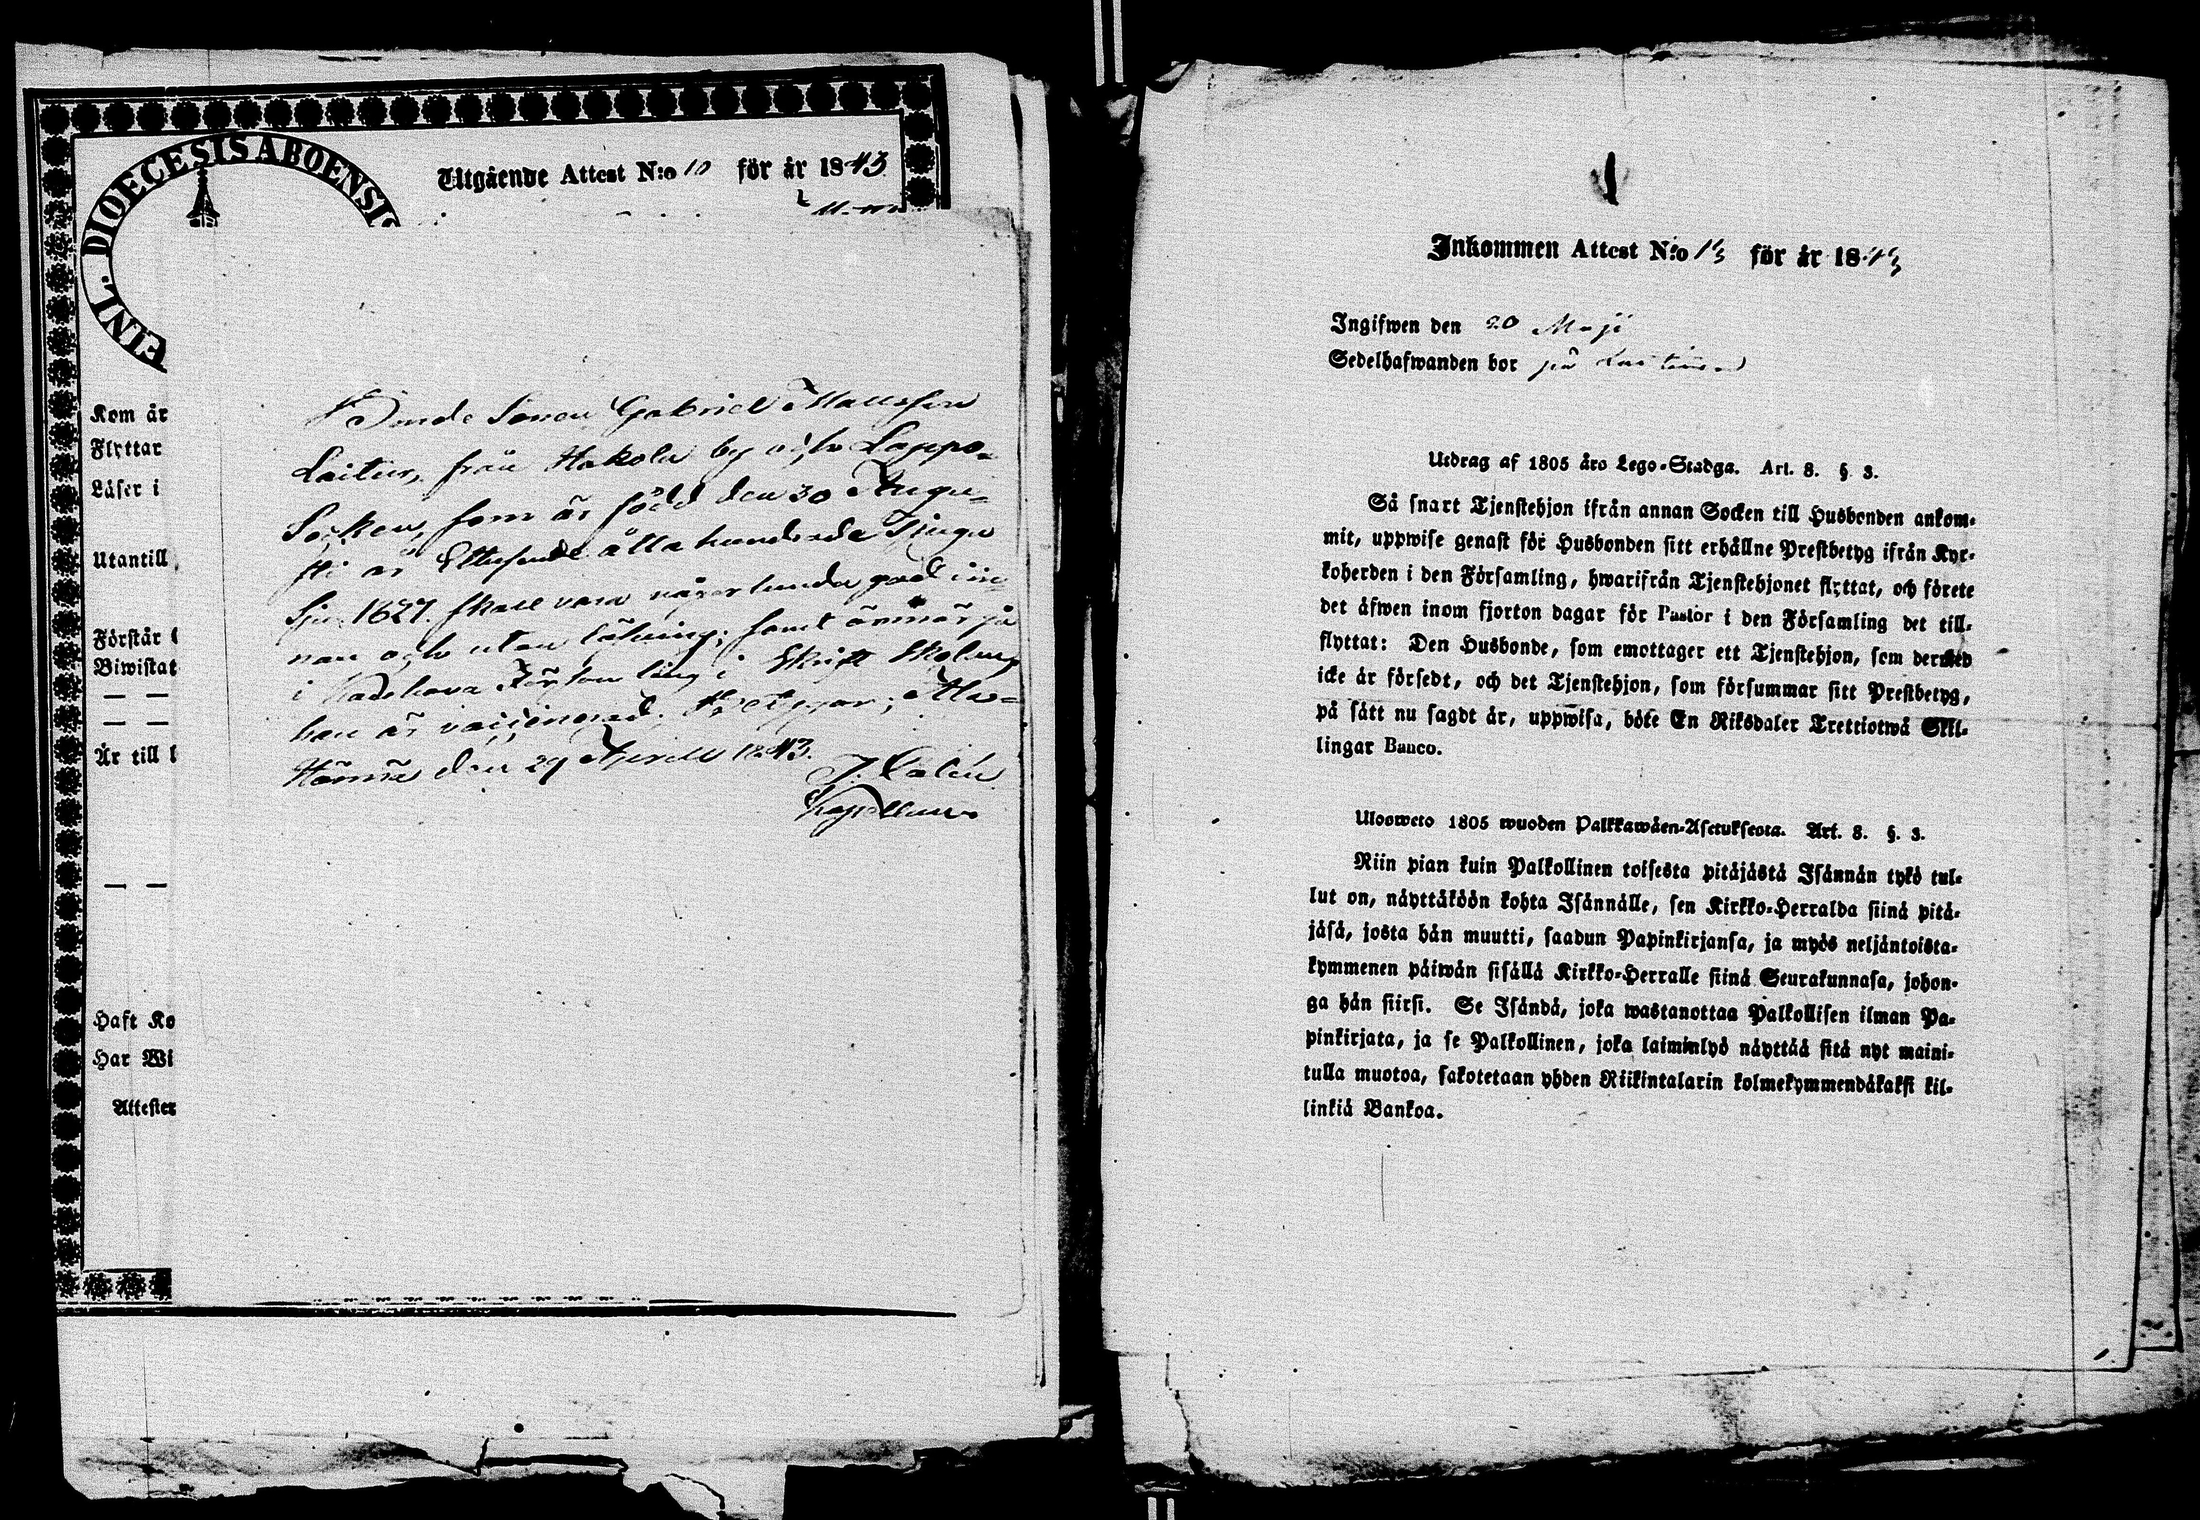 FINL. DIOECESIS ABOENSIS
Utgående Attest N:o 10 för år 1843
Kom år
Flyttar
Läser i
Utantill
Förstår
Biwistat
— —
— —
Är till
— —
Haft Ko
Har Wi
Attester
Bonde Sonen Gabriel Mattsson
Laitur, från Hakola by och Lappo-
Socken, som är född den 30 Augu-
sti år Ettusende åtta hundrade Tjugu
Sju 1827. skall vara någorlunda god i in-
nan och utan läsning; samt
i Församling i Skrift
han är vaccinerad.
den 29 Aprill 1843.
J.
Kapellan
Inkommen Attest N:o 13 för år 1843
Ingifwen den 20 Maji
Sedelhafwanden bor på
Utdrag af 1805 års Lego-Stadga. Art. 8. §. 3.
Så snart Tjenstehjon ifrån annan Socken till Husbonden ankom-
mit, uppwise genast för Husbonden sitt erhållne Prestbetyg ifrån Kyr-
koherden i den Församling, hwarifrån Tjenstehjonet flyttat, och förete
det äfwen inom fjorton dagar för Pastor i den Församling det till-
flyttat: Den Husbonde, som emottager ett Tjenstehjon, som dermed
icke är försedt, och det Tjenstehjon, som försummar sitt Prestbetyg,
på sätt nu sagdt är, uppwisa, böte En Riksdaler Trettiotwå Skil-
lingar Banco.
Ulosweto 1805 wuoden Palkkawäen-Asetuksesta. Art. 8. §. 3.
Niin pian kuin Palkollinen toisesta pitäjästä Isännän tykö tul-
lut on, näyttäköön kohta Isännälle, sen Kirkko-Herralda siinä pitä-
jäsä, josta hän muutti, saadun Papinkirjansa, ja myös neljäntoista-
kymmenen päiwän sisällä Kirkko-Herralle siinä Seurakunnasa, johon-
ga hän siirsi. Se Isändä, joka wastanottaa Palkollisen ilman Pa-
pinkirjata, ja se Palkollinen, joka laiminlyö näyttää sitä nyt maini-
tulla muotoa, sakotetaan yhden Riikintalarin kolmekymmendäkaksi kil-
linkiä Bankoa.